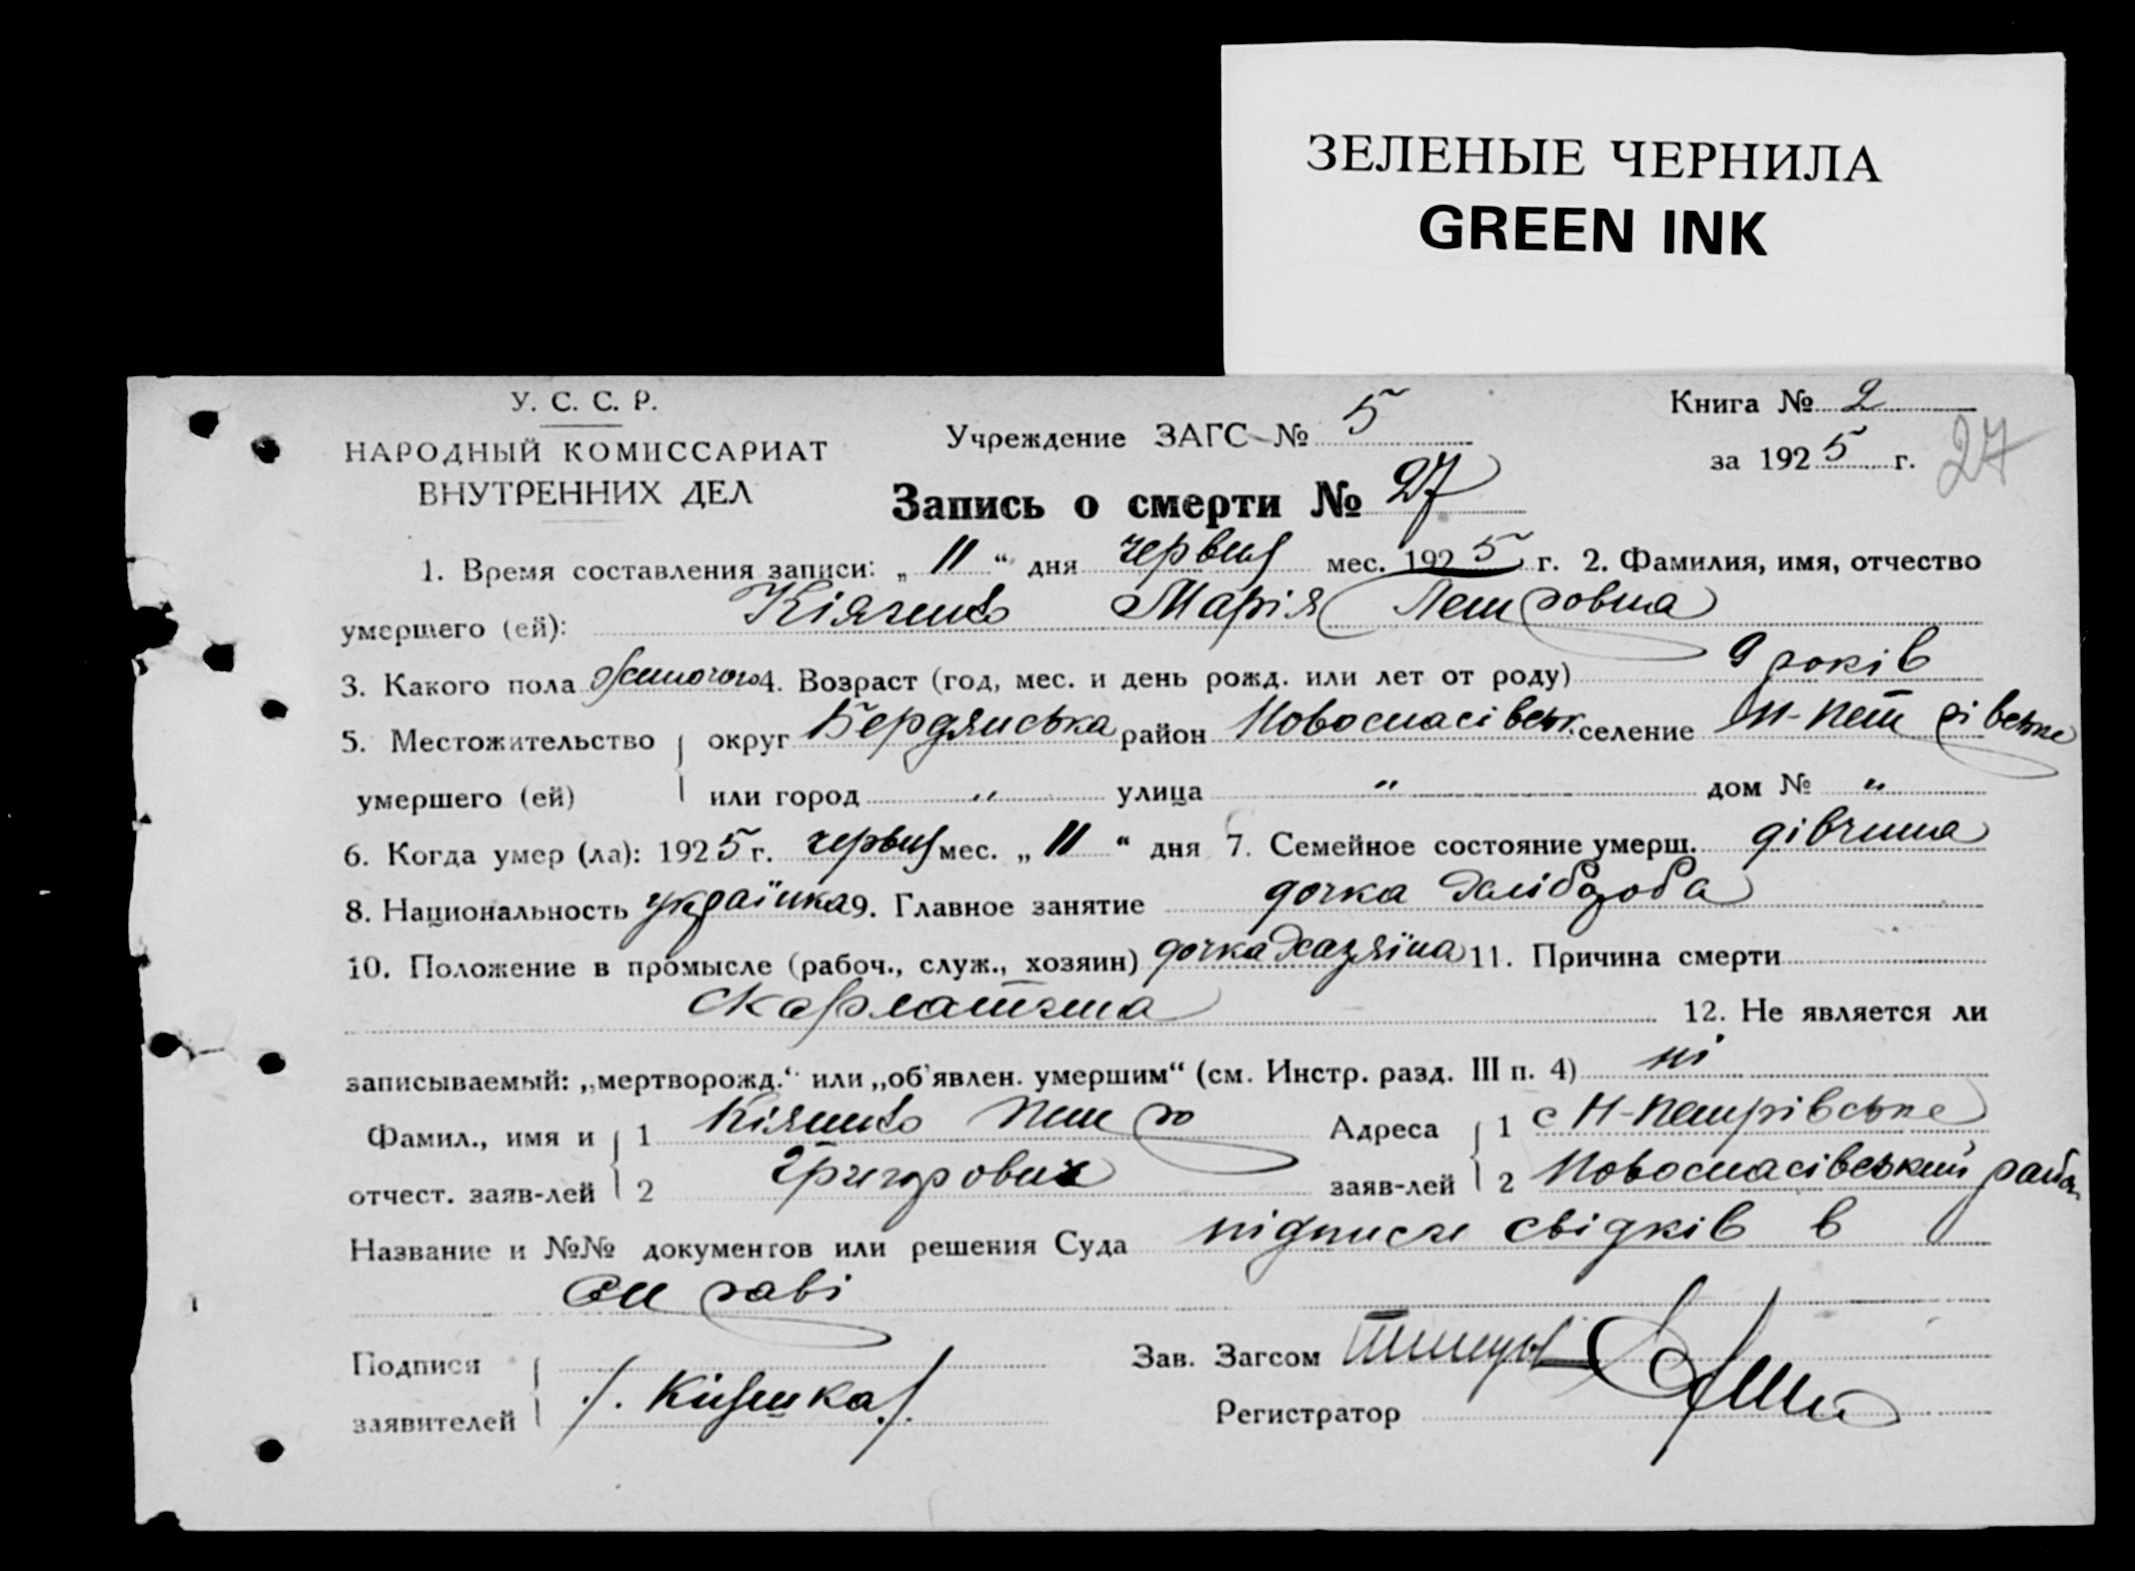 ЗЕЛЕНЫЕ ЧЕРНИЛА
GREEN INK
У. С. С. Р.
НАРОДНЫЙ КОМИССАРИАТ
ВНУТРЕННИХ ДЕЛ
Учреждение ЗАГС № 5
Книга № 2
за 1925 г.
27
Запись о смерти № 27
1. Время составления записи: „11“ дня червня мес. 1925 г. 2. Фамилия, имя, отчество
умершего (ей): Марія Петровна
3. Какого пола жиночого 4. Возраст (год, мес. и день рожд. или лет от роду) 9 років
5. Местожительство умершего (ей) округ Бердянська район Новоспасівськ. селение Н-Петрівське
или город " улица " дом № "
6. Когда умер (ла): 1925 г. червня мес. „11“ дня 7. Семейное состояние умерш. дівчина
8. Национальность українка 9. Главное занятие дочка хлібороба
10. Положение в промысле (рабоч., служ., хозяин) дочка хазяїна 11. Причина смерти
скарлатина 12. Не является ли
записываемый: „мертворожд.“ или „об'явлен. умершим“ (см. Инстр. разд. III п. 4) ні
Фамил., имя и отчест. заяв-лей 1 Петро Адреса заяв-лей 1 с Н-Петрівське
2 Григорович 2 Новоспасівський район
Название и №№ документов или решения Суда підписи свідків в
справі
Подписи заявителей
Зав. Загсом
Регистратор